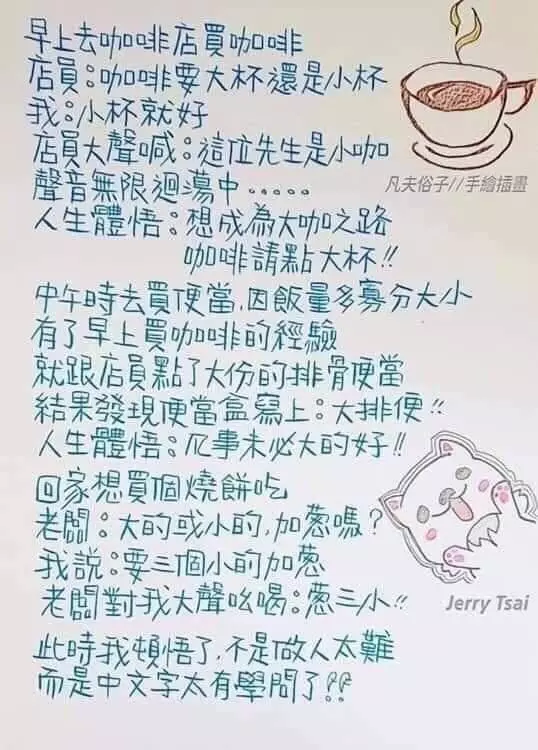 早上去咖啡店買咖啡
店員：咖啡要大杯還是小杯
我：小杯就好
店員大聲喊：這位先生是小咖
聲音無限迴蕩中．．．．．
人生體悟：想成為大咖之路
咖啡請點大杯!!
凡夫俗子//手繪插畫
中午時去買便當，因飯量多寡分大小
有了早上買咖啡的經驗
就跟店員點了大份的排骨便當
結果發現便當盒寫上：大排便!!
人生體悟：凡事未必大的好!!
回家想買個燒餅吃
老闆：大的或小的，加蔥嗎？
我說：要三個小的加蔥
老闆對我大聲吆喝：蔥三小!!
Jerry Tsai
此時我頓悟了，不是做人太難
而是中文字太有學問了!!